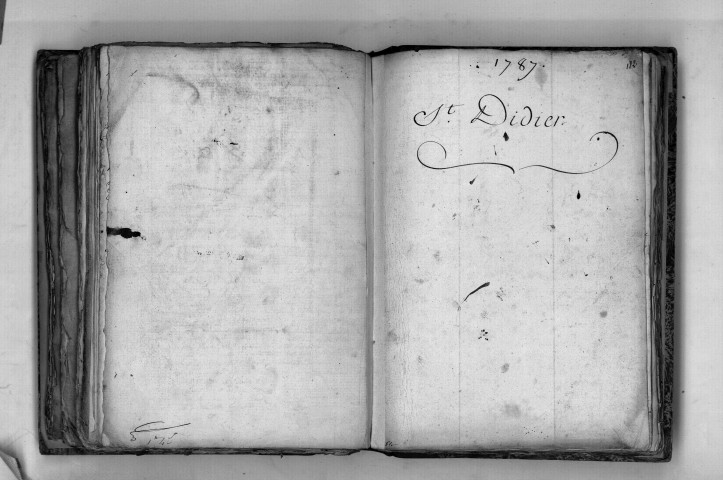 1787.
St. Didier.